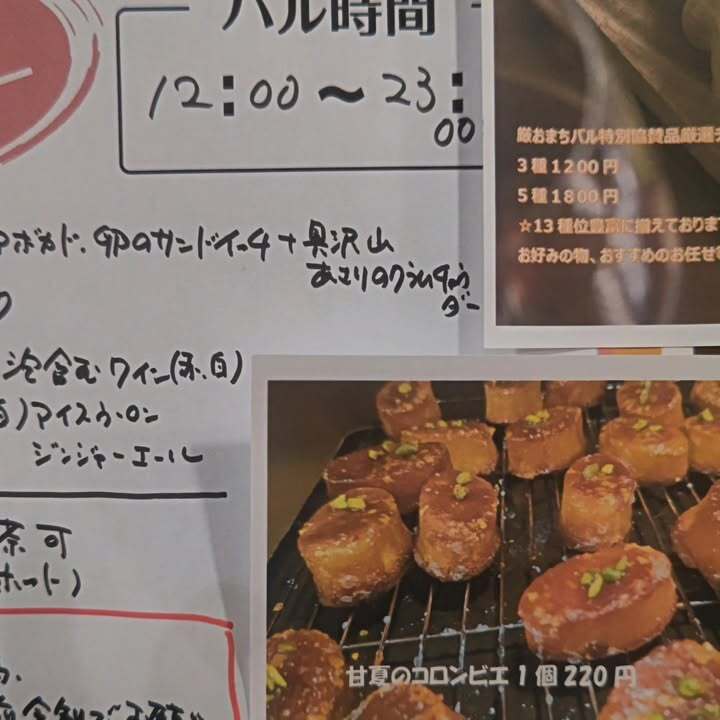 バル時間
12:00〜23:00
厳おまちバル特別協賛品厳選
3種1200円
5種1800円
☆13種位豊富に揃えておりま
お好みの物、おすすめのお任せ
アボカド、卵のサンドイッチ+具沢山
あさりのクラムチャウ
ダー
泡含むワイン(赤、白)
アイスウーロン
ジンジャーエール
茶可
ホット)
甘夏のコロンビエ1個220円